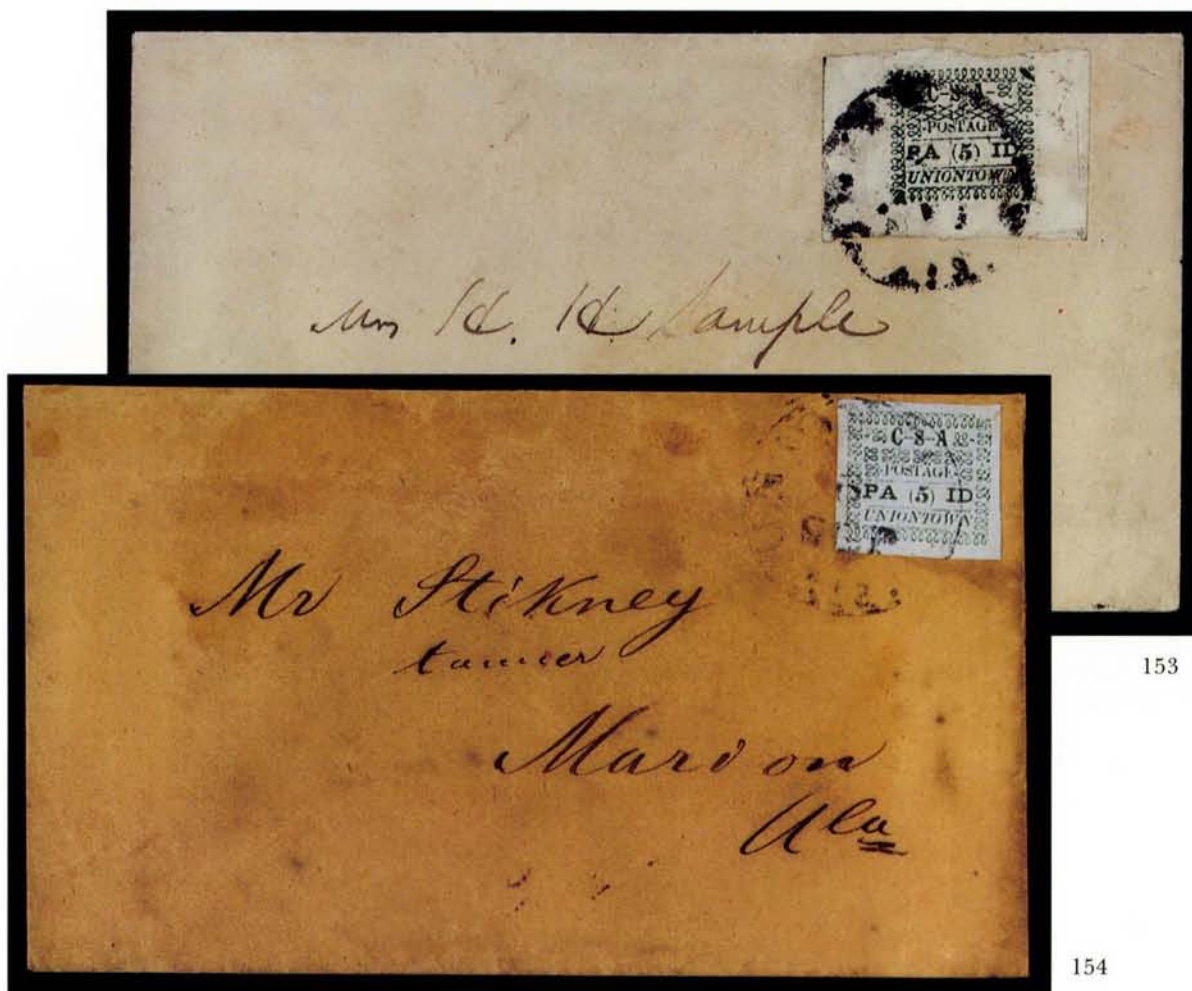 C-S-A-
-POSTAGE-
PA (5) ID
UNIONTOWN
Mrs H. H. Sample
153
-C-S-A-
-POSTAGE-
PA (5) ID
UNIONTOWN
Mr Stikney
Marion
Ala
154